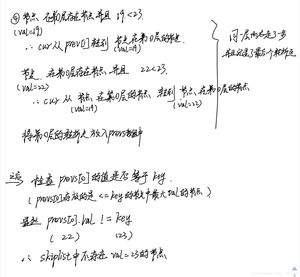 ④ 节点 在第0层存在节点,并且 19<23.
(val=19)
∴ cur从 prev[0] 移到 节点 在第0层的节点.
(val=19)
节点 在第0层存在节点,并且 22<23.
(val=22)
∴ cur 从 节点 在第0层的节点 移到 节点 在第0层的节点
(val=19) (val=22)
同一层向右走了一步
将第0层的 放入prevs数组中
之后 检查 prevs[0] 的值是否等于 key.
(prevs[0]存放的是 <= key的节点中最大val的节点)
显然 prevs[0].val != key
(22) (23)
∴ skiplist中不存在 val=23的节点